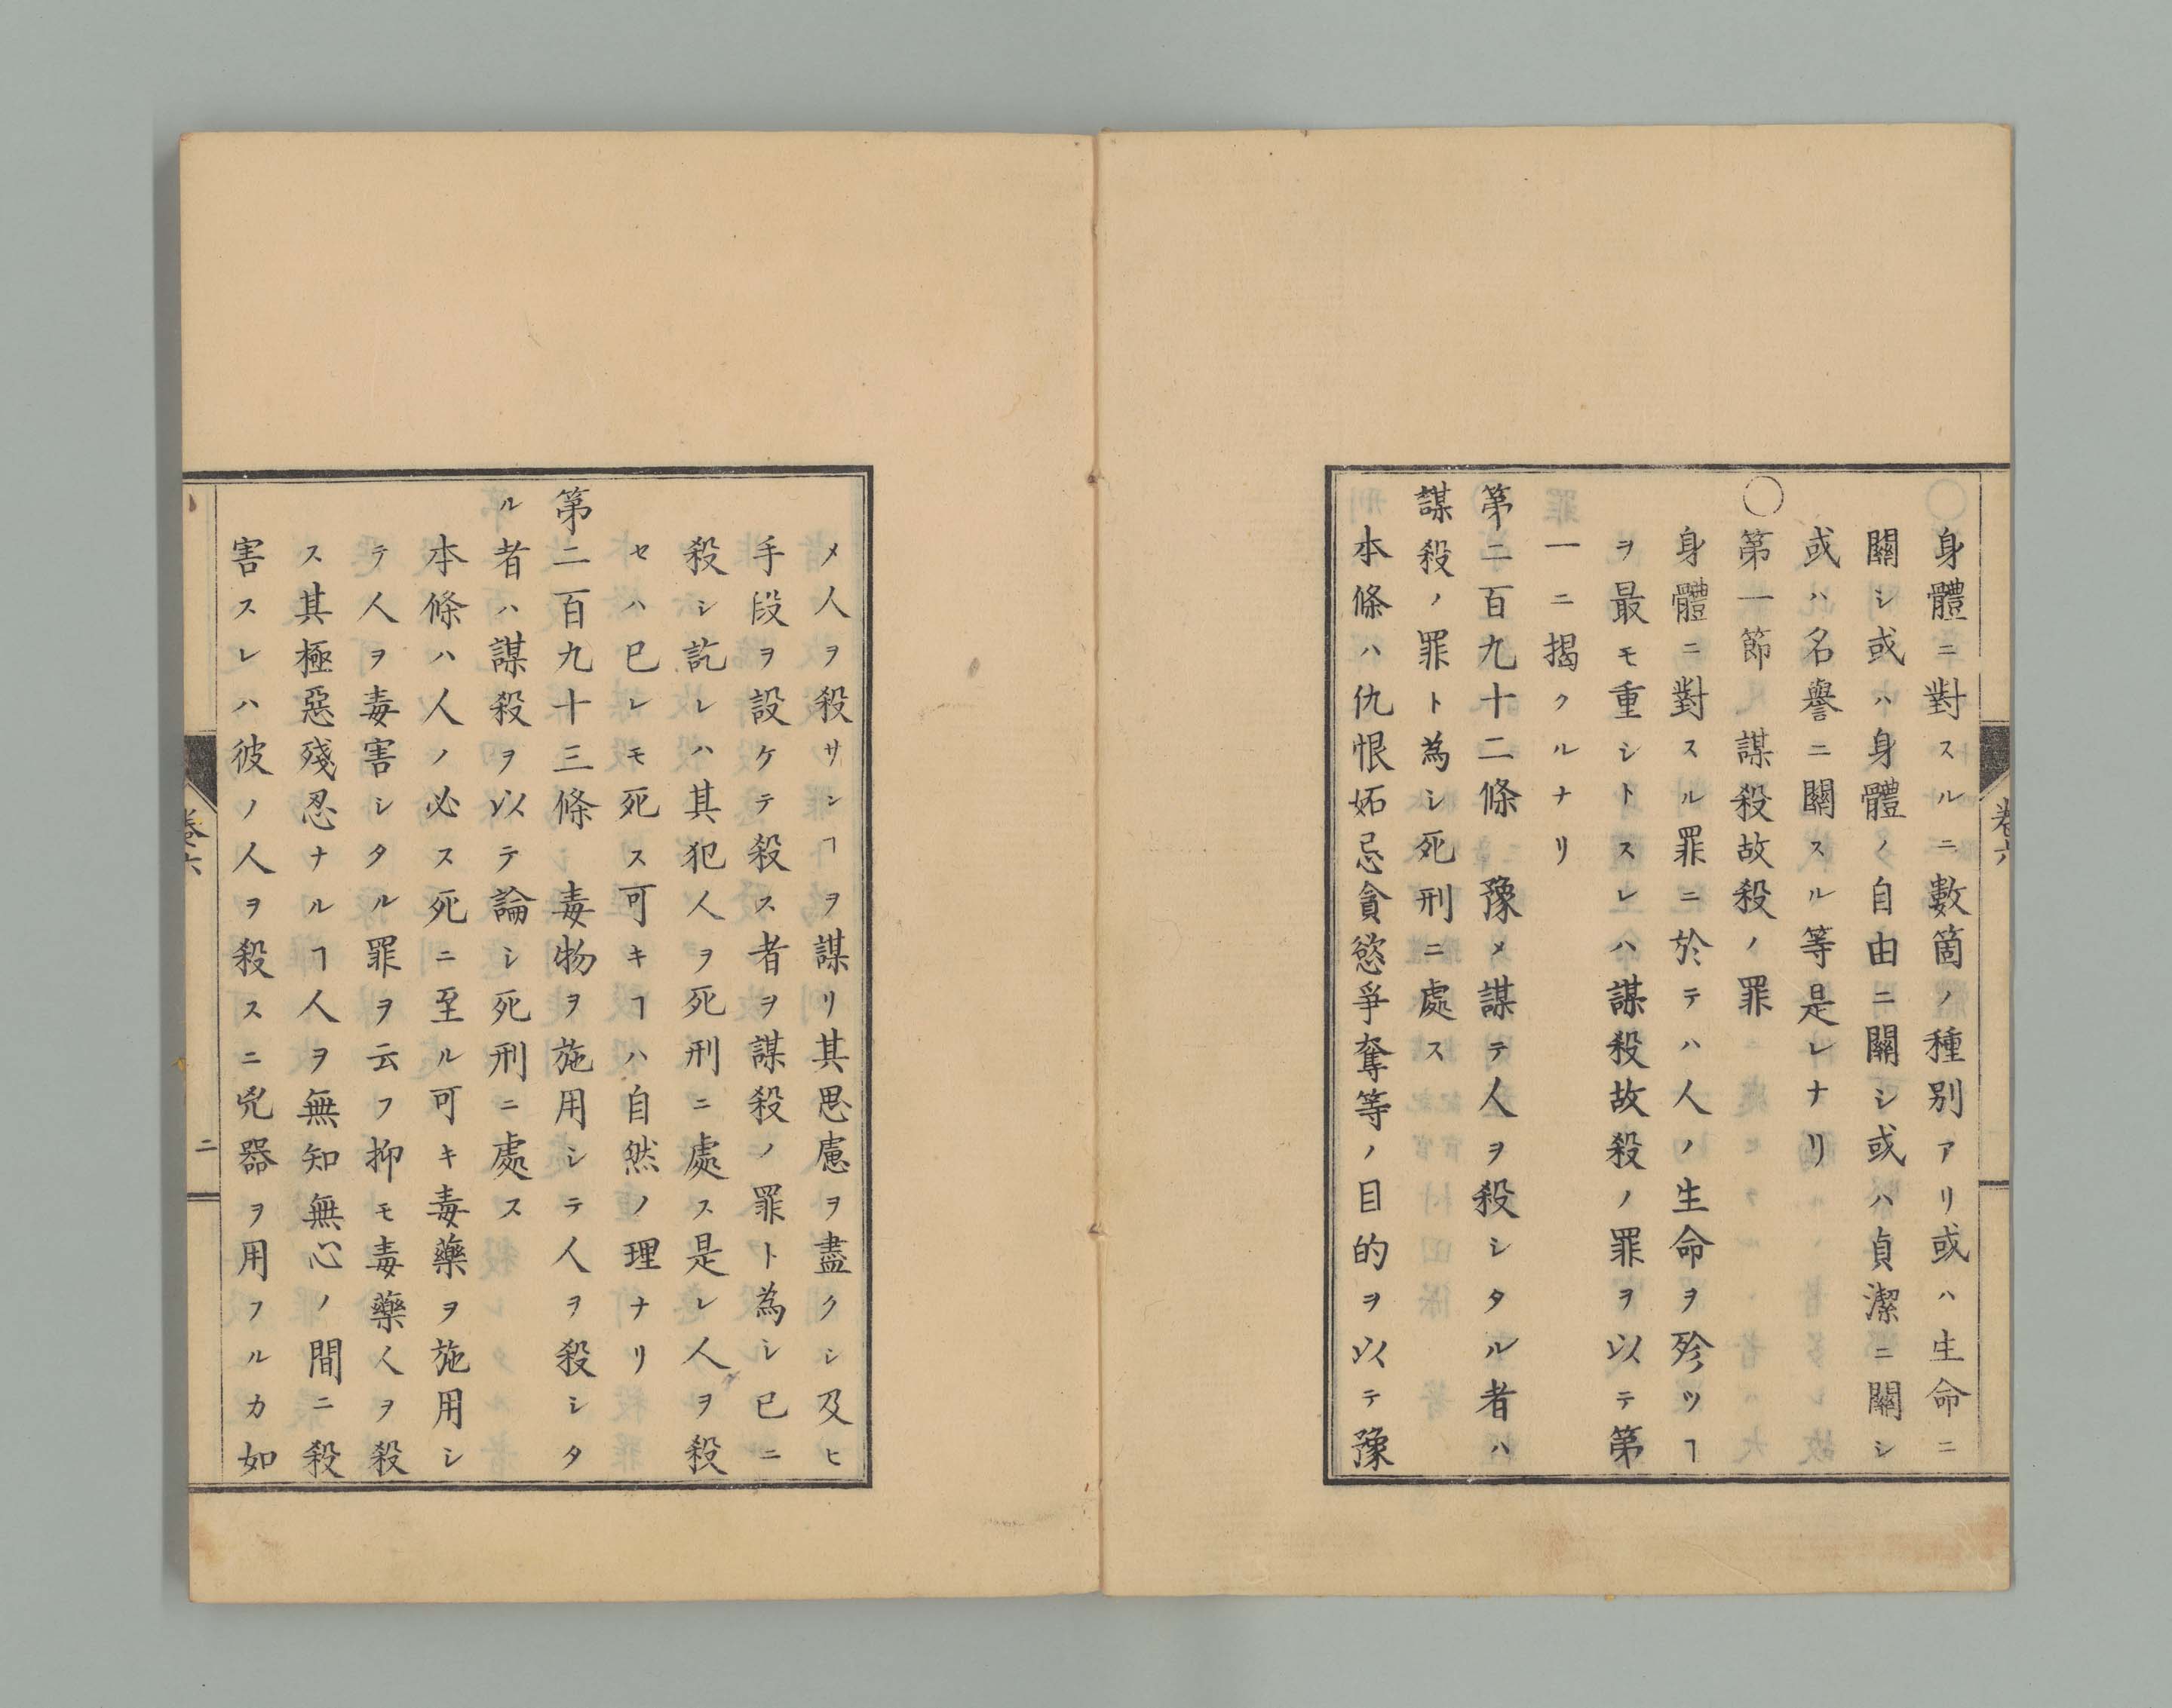 身體ニ對スルニ數箇ノ種別アリ或ハ生命ニ
關シ或ハ身體ノ自由ニ關シ或ハ貞潔ニ關シ
或ハ名譽ニ關スル等是レナリ
○第一節 謀殺故殺ノ罪
身體ニ對スル罪ニ於テハ人ノ生命ヲ殄ツヿ
ヲ最モ重シトスレハ謀殺故殺ノ罪ヲ以テ第
一ニ揭クルナリ
第二百九十二條 豫メ謀テ人ヲ殺シタル者ハ
謀殺ノ罪ト為シ死刑ニ處ス
本條ハ仇恨妬忌貪慾爭奪等ノ目的ヲ以テ豫
卷六
メ人ヲ殺サンヿヲ謀リ其思慮ヲ盡クシ及ヒ
手段ヲ設ケテ殺ス者ヲ謀殺ノ罪ト為シ已ニ
殺シ訖レハ其犯人ヲ死刑ニ處ス是レ人ヲ殺
セハ已レモ死ス可キヿハ自然ノ理ナリ
第二百九十三條 毒物ヲ施用シテ人ヲ殺シタ
ル者ハ謀殺ヲ以テ論シ死刑ニ處ス
本條ハ人ノ必ス死ニ至ル可キ毒藥ヲ施用シ
テ人ヲ毒害シタル罪ヲ云フ抑モ毒藥人ヲ殺
ス其極惡殘忍ナルヿ人ヲ無知無心ノ間ニ殺
害スレハ彼ノ人ヲ殺スニ兇器ヲ用フルカ如
卷六
二